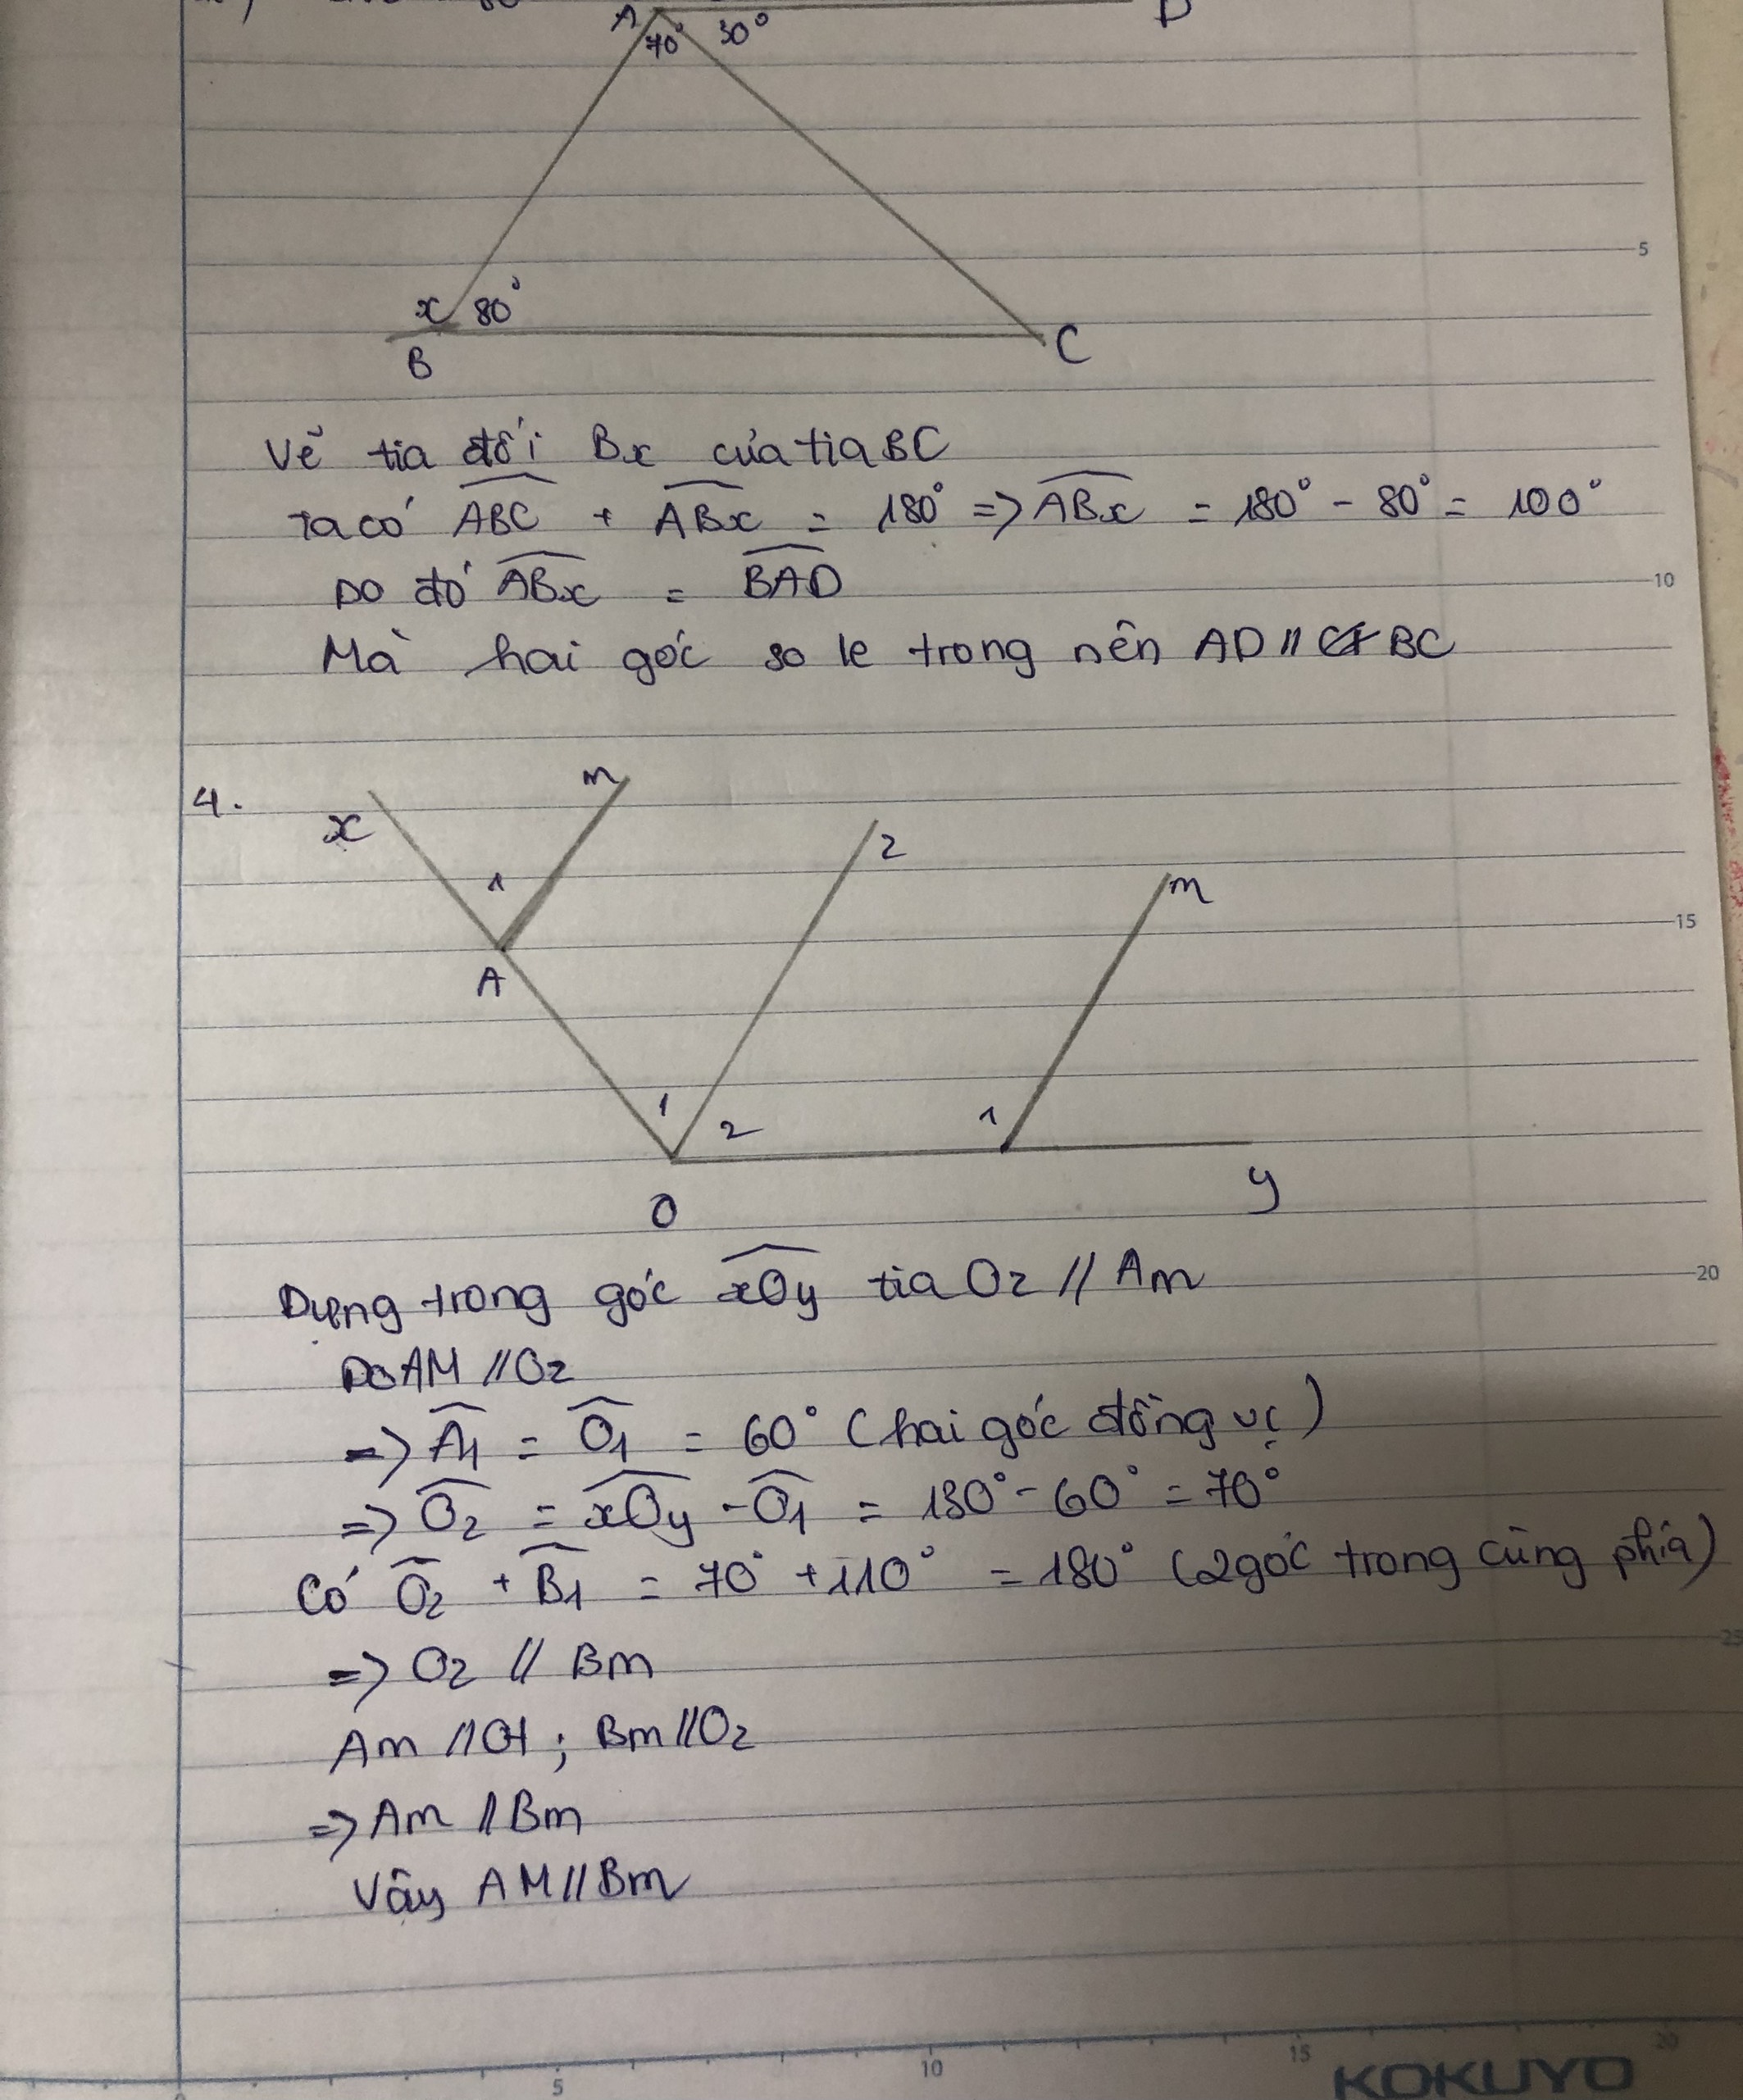 A
D
70°
30°
5
x
80°
B
C
Vẽ tia đối Bx của tia BC
Ta có ABC + ABx = 180° => ABx = 180° - 80° = 100°
Do đó ABx = BAD
10
Mà hai góc so le trong nên AD // BC
4.
x
m
z
1
m
15
A
1
2
1
O
y
Dựng trong góc xOy tia Oz // Am
20
Do AM // Oz
=> A1 = O1 = 60° (hai góc đồng vị)
=> O2 = xOy - O1 = 130° - 60° = 70°
Có O2 + B1 = 70° + 110° = 180° (2 góc trong cùng phía)
25
=> Oz // Bm
Am // Ot ; Bm // Oz
=> Am // Bm
Vậy AM // Bm
5
10
15
20
KOKUYO